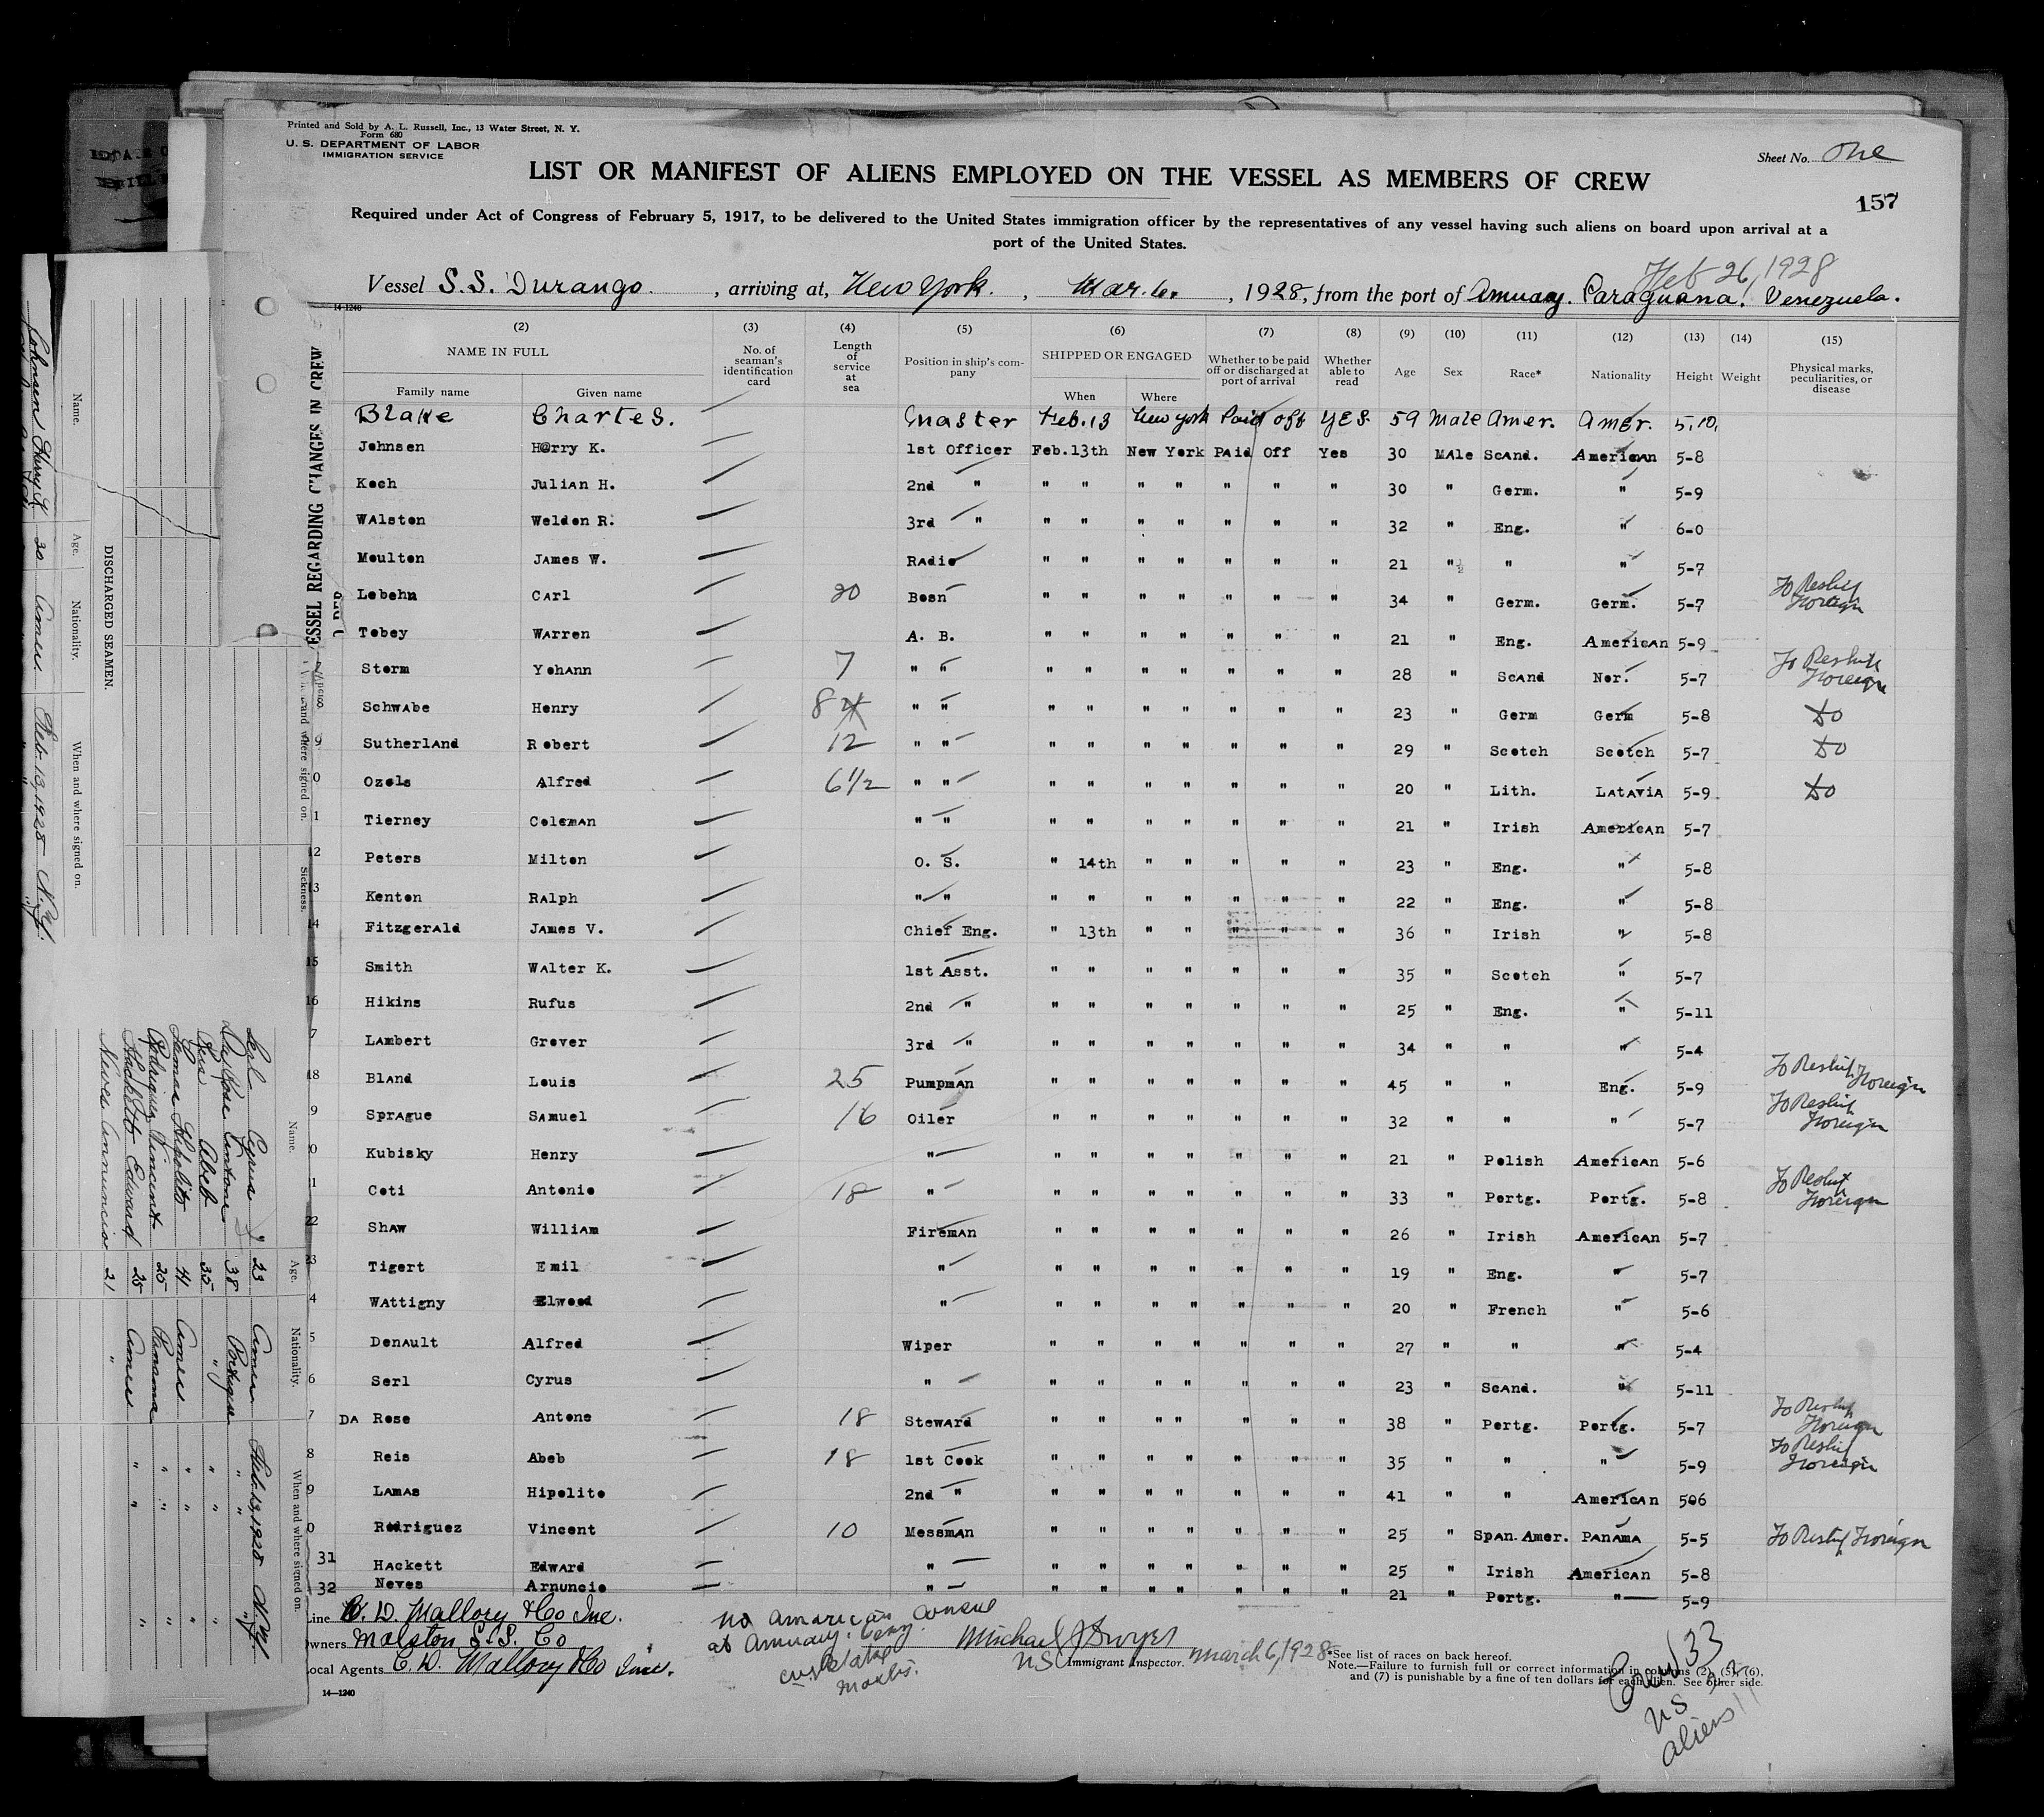 Printed and Sold by A. L. Russell, Inc., 13 Water Street, N. Y.
Form 680
U. S. DEPARTMENT OF LABOR
IMMIGRATION SERVICE
Sheet No. One
LIST OR MANIFEST OF ALIENS EMPLOYED ON THE VESSEL AS MEMBERS OF CREW
157
Required under Act of Congress of February 5, 1917, to be delivered to the United States immigration officer by the representatives of any vessel having such aliens on board upon arrival at a
port of the United States.
Feb 26, 1928
Vessel S.S. Durango , arriving at, New York. , Mar. 6. , 1928, from the port of Amuay. Paraguana. Venezuela.
14-1240
(2) (3) (4) (5) (6) (7) (8) (9) (10) (11) (12) (13) (14) (15)
NAME IN FULL
Family name Given name
No. of seaman's identification card
Length of service at sea
Position in ship's company
SHIPPED OR ENGAGED
When Where
Whether to be paid off or discharged at port of arrival
Whether able to read
Age Sex Race* Nationality Height Weight
Physical marks, peculiarities, or disease
Blake Charles. Master Feb. 13 New York Paid off YES 59 Male Amer. Amer. 5.10.
Johnsen Harry K. 1st Officer Feb. 13th New York Paid Off Yes 30 Male Scand. American 5-8
Koch Julian H. 2nd " " " " " " " " 30 " Germ. " 5-9
Walston Weldon R. 3rd " " " " " " " " 32 " Eng. " 6-0
Moulton James W. Radio " " " " " " " 21 " " " 5-7
Lebehn Carl 20 Bosn " " " " " " " 34 " Germ. Germ. 5-7 To Reship Foreign
Tobey Warren A. B. " " " " " " " 21 " Eng. American 5-9
Storm Yohann 7 " " " " " " " " " 28 " Scand Nor. 5-7 To Reship Foreign
Schwabe Henry 8 " " " " " " " " " 23 " Germ Germ 5-8 do
Sutherland Robert 12 " " " " " " " " " 29 " Scotch Scotch 5-7 do
Ozols Alfred 6 1/2 " " " " " " " " " 20 " Lith. Latavia 5-9 do
Tierney Coleman " " " " " " " " " 21 " Irish American 5-7
12 Peters Milton O. S. " 14th " " " " " 23 " Eng. " 5-8
13 Kenton Ralph " " " " " " " " " 22 " Eng. " 5-8
14 Fitzgerald James V. Chief Eng. " 13th " " " " " 36 " Irish " 5-8
15 Smith Walter K. 1st Asst. " " " " " " " 35 " Scotch " 5-7
16 Hikins Rufus 2nd " " " " " " " " 25 " Eng. " 5-11
7 Lambert Grover 3rd " " " " " " " " 34 " " " 5-4
18 Bland Louis 25 Pumpman " " " " " " " 45 " " Eng. 5-9 To Reship Foreign
9 Sprague Samuel 16 Oiler " " " " " " " 32 " " " 5-7 To Reship Foreign
0 Kubisky Henry " " " " " " " " 21 " Polish American 5-6
1 Coti Antonio 18 " " " " " " " " 33 " Portg. Portg. 5-8 To Reship Foreign
22 Shaw William Fireman " " " " " " " 26 " Irish American 5-7
23 Tigert Emil " " " " " " " " 19 " Eng. " 5-7
4 Wattigny Elwood " " " " " " " " 20 " French " 5-6
5 Denault Alfred Wiper " " " " " " " 27 " " " 5-4
6 Serl Cyrus " " " " " " " " 23 " Scand. " 5-11
7 Da Rose Antone 18 Steward " " " " " " " 38 " Portg. Portg. 5-7 To Reship Foreign
8 Reis Abeb 18 1st Cook " " " " " " " 35 " " " 5-9 To Reship Foreign
9 Lamas Hipolito 2nd " " " " " " " " 41 " " American 506
0 Rodriguez Vincent 10 Messman " " " " " " " 25 " Span. Amer. Panama 5-5 To Reship Foreign
31 Hackett Edward " " " " " " " " 25 " Irish American 5-8
32 Neves Arnuncio " " " " " " " " 21 " Portg. " 5-9
Line C. D. Mallory & Co Inc.
Owners Malston S.S. Co
Local Agents C. D. Mallory & Co Inc.
14—1240
No American Consul
at Amuay. Venz.
Michael J Dwyer
US Immigrant Inspector. March 6, 1928
*See list of races on back hereof.
Note.—Failure to furnish full or correct information in columns (2), (5), (6),
and (7) is punishable by a fine of ten dollars for each alien. See other side.
Crew 33
US
aliens 11
VESSEL REGARDING CHANGES IN CREW
DISCHARGED SEAMEN.
Name. Age. Nationality. When and where signed on.
Johnsen Harry K. 30 Amer. Feb. 13, 1928 N.Y.
Sickness.
Name. Age. Nationality. When and where signed on.
Serl Cyrus 23 Amer Feb. 13, 1928 N.Y.
Da Rose Antone 38 Portugue " "
Reis Abeb 35 " " "
Lamas Hipolito 41 Amer " "
Rodriguez Vincent 25 Panama " "
Hackett Edward 25 Amer " "
Neves Annuncio 21 "